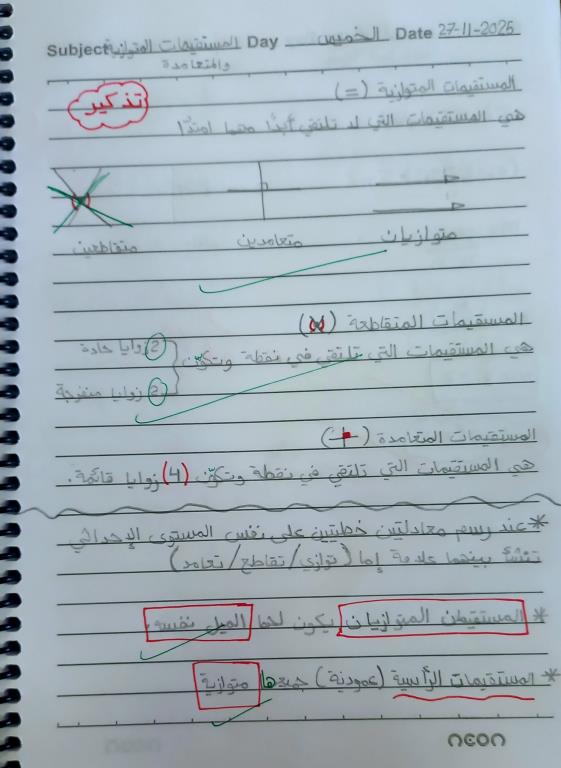 Subject المستقيمات المتوازية Day الخميس Date 27-11-2025
والمتعامدة
المستقيمات المتوازية (=)
تذكير
هي المستقيمات التي لا تلتقي أبدًا مهما امتدّا
متوازيان متعامدين متقاطعين
المستقيمات المتقاطعة (X)
هي المستقيمات التي تلتقي في نقطة وتكوّن 2 زوايا حادة
2 زوايا منفرجة
المستقيمات المتعامدة (+)
هي المستقيمات التي تلتقي في نقطة وتكوّن (4) زوايا قائمة.
* عند رسم معادلتين خطيتين على نفس المستوى الإحداثي
تنشأ بينهما علاقة إما (توازي/تقاطع/تعامد)
* المستقيمان المتوازيان يكون لهما الميل نفسه.
* المستقيمات الرأسية (عمودية) جميعها متوازية
neon